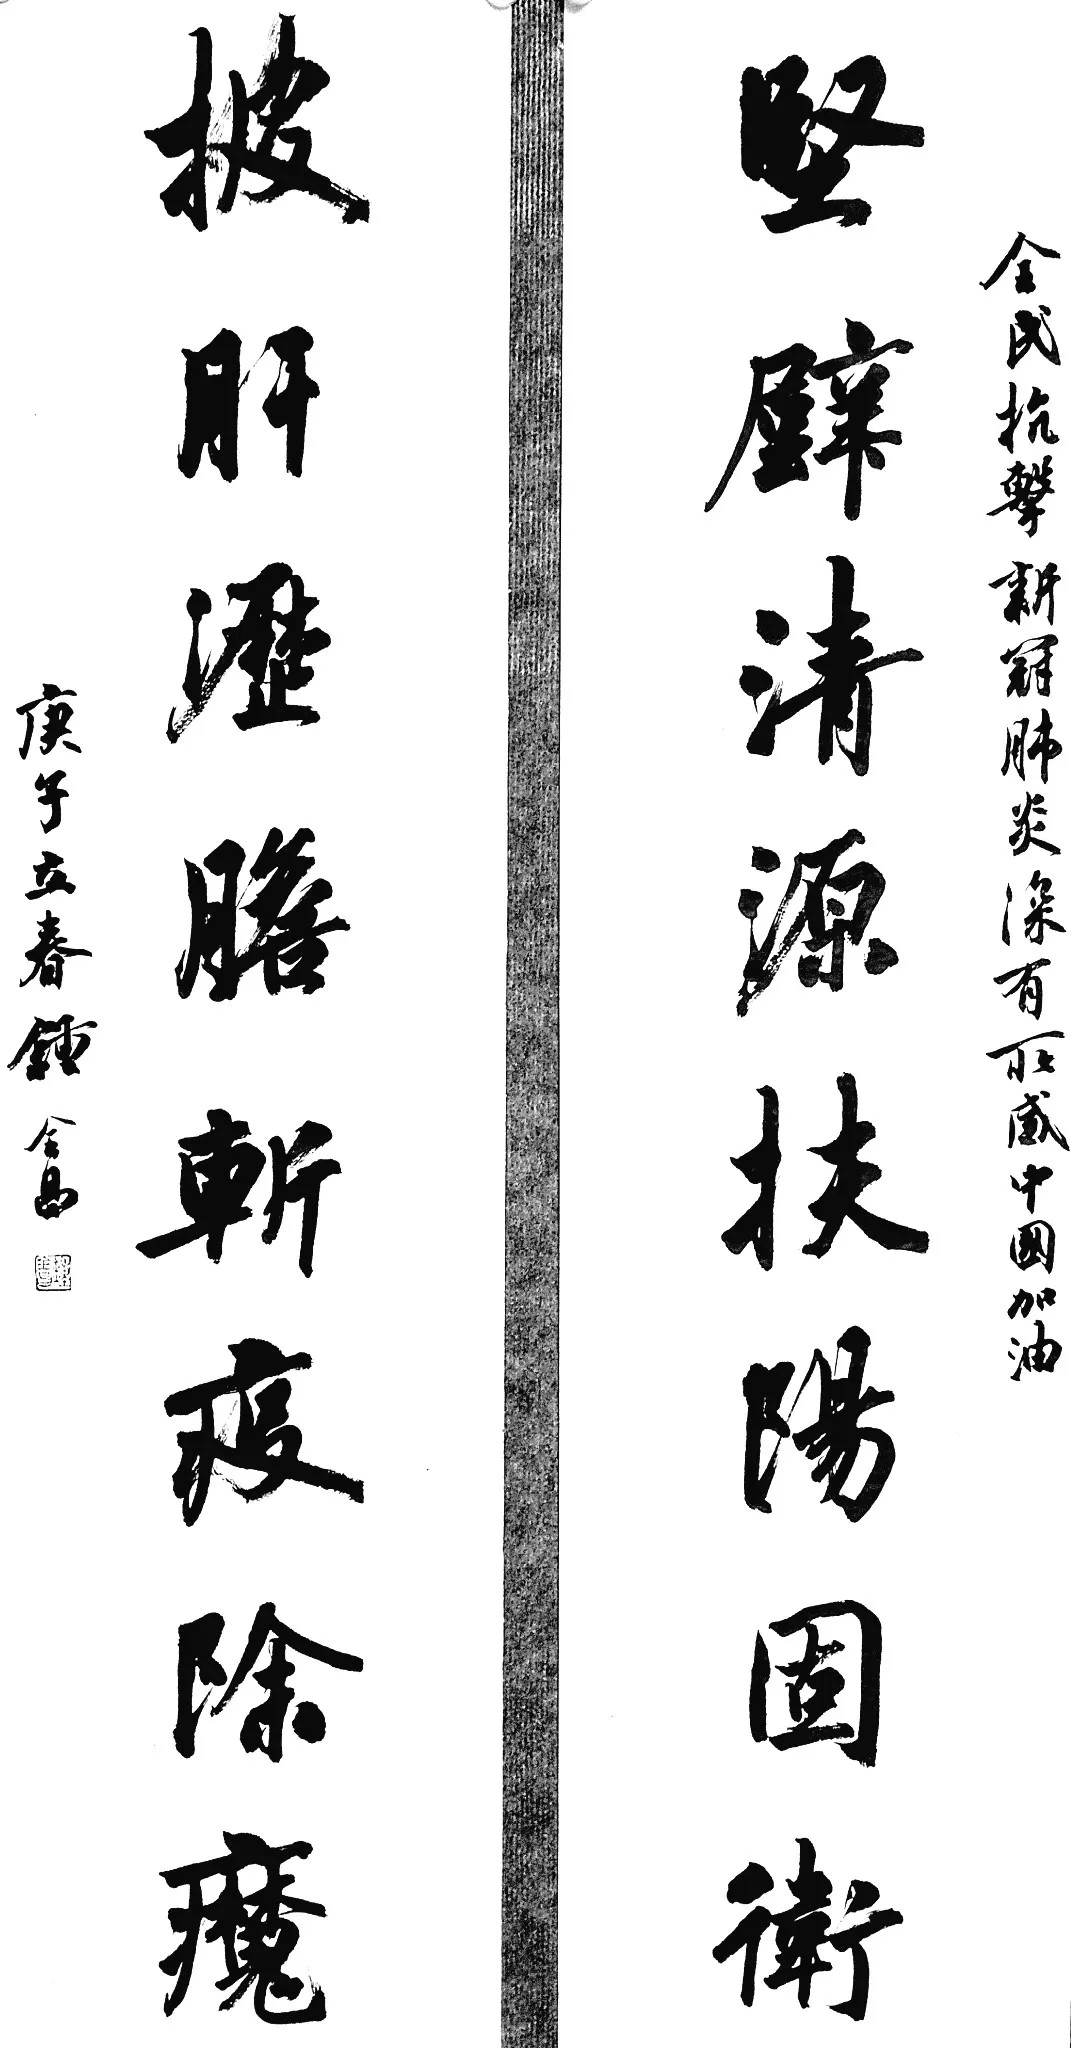 全民抗擊新冠肺炎深有所感中國加油
堅壁清源扶陽固衛
披肝瀝膽斬疫除魔
庚子立春鍾